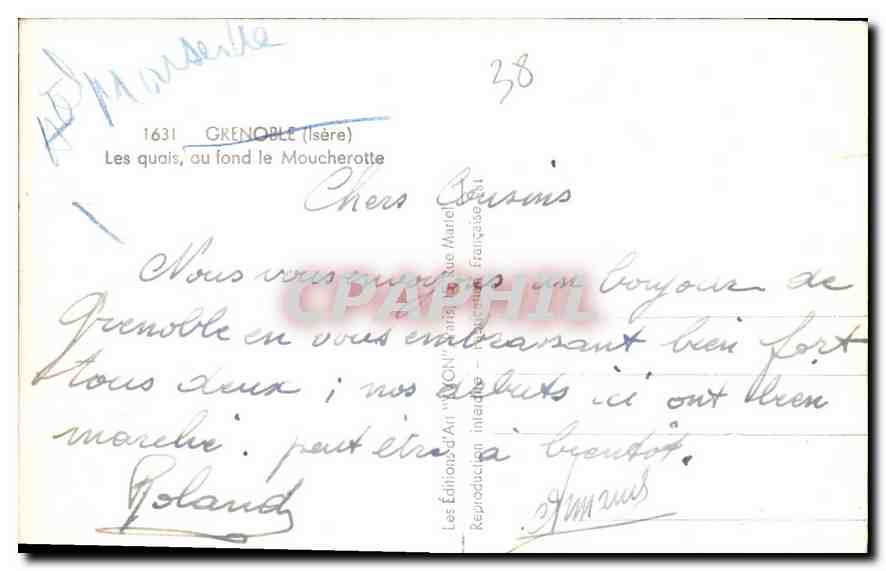 38
1631 GRENOBLE (Isère)
Les quais, au fond le Moucherotte
Chers Cousins
Nous vous envoyons un bonjour de
Grenoble en vous embrassant bien fort
tous deux ; nos debuts ici ont bien
marché. peut être à bientôt.
Roland
Les Éditions d'Art "YVON" Paris, Rue Martel
Reproduction interdite - Fabrication Française
CPAPHIL